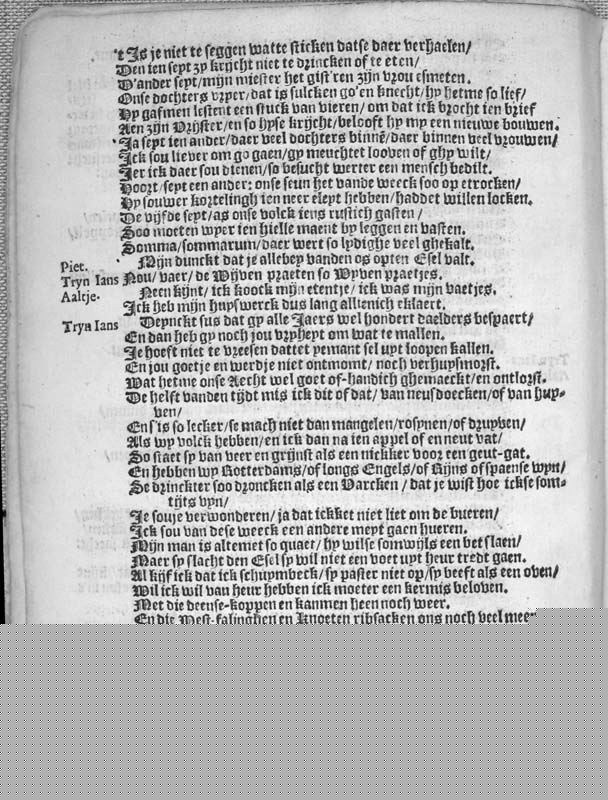 't Is je niet te seggen watte sticken datse daer verhaelen/
Den ien seyt zy krycht niet te drincken of te eten/
D'ander seyt/mijn miester het gist'ren zijn vrou esmeten.
Onse dochters vryer/dat is sulcken go'en knecht/hy het me so lief/
Hy gafmen lestent een stuck van vieren/ om dat ick brocht ien brief
Aen zijn Vrijster/en so hyse krijcht/belooft hy my een nieuwe bouwen.
Ja seyt ien ander/daer veel dochters binnē/daer binnen veel vrouwen/
Ick sou liever om go gaen/gy meuchtet looven of ghy wilt/
Ier ick daer sou dienen/so besucht werter een mensch bedilt.
Hoort/seyt een ander: onse seun het vande weeck soo op etrocken/
Hy souwer kortelingh ien neer eleyt hebben/haddet willen locken.
De vijfde seyt/as onse volck iens rustich gasten/
Soo moeten wyer ien hielle maent by leggen en vasten.
Somma/sommarum/daer wert so lydighe veel ghekalt.
Piet. Mijn dunckt dat je allebey vanden os opten Esel valt.
Tryn Ians Nou/vaer/de Wijven praeten so Wyven praetjes.
Aaltje. Neen kijnt/ick koock mijn etentje/ick was mijn vaetjes.
Ick heb mijn huyswerck dus lang allienich eklaert.
Tryn Ians Deynckt sus dat gy alle Jaers wel hondert daelders bespaert/
En dan heb gy noch jou vryheyt om wat te mallen.
Je hoeft niet te vreesen dattet yemant sel uyt loopen kallen.
En jou goetje en werdje niet ontmomt/ noch verhuysmorst.
Wat hetme onse Aecht wel goet of-handich ghemaeckt/en ontlorst.
De helft vanden tijdt mis ick dit of dat/ van neusdoecken/of van huy-
ven/
En s'is so lecker/se mach niet dan mangelen/rosynen/of druyven/
Als wy volck hebben/en ick dan na ien appel of en neut vat/
So staet sy van veer en grijnst als een nickker voor een geut-gat.
En hebben wy Rotterdams/of longs Engels/of Rijns of spaense wyn/
Se drinckter soo droncken als een Varcken / dat je wist hoe ickse som-
tijts vyn/
Je souje verwonderen/ ja dat ickket niet liet om de bueren/
Ick sou van dese weeck een andere meyt gaen hueren.
Mijn man is altemet so quaet/ hy wilse somwijls een bet slaen/
Maer sy slacht den Esel sy wil niet een voet uyt heur tredt gaen.
Al kijf ick dat ick schuymbeck/sy paster niet op/sy heeft als een oven/
Wil ick wil van heur hebben ick moeter een kermis beloven.
Met die deense-koppen en kanmen heen noch weer.
En die West-falinghen en Knoeten ribsacken ons noch veel